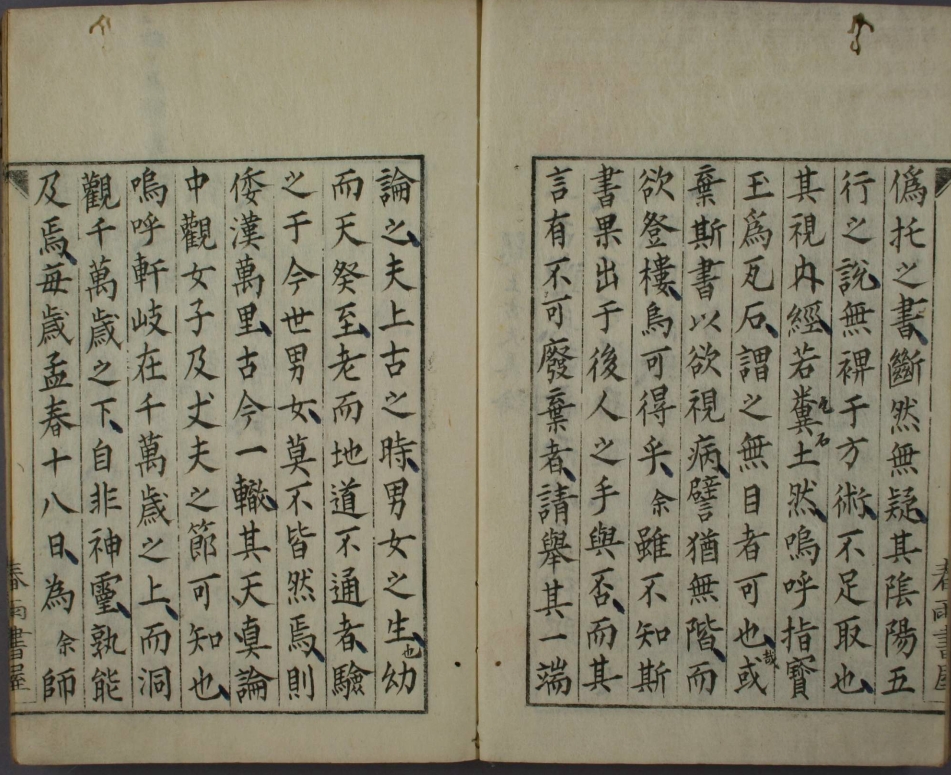 偽托之書、斷然無疑、其陰陽五
行之說、無裨于方術、不足取也、
其視內經、若糞土然、嗚呼指寳
玉爲瓦石、謂之無目者可也、哉或
棄斯書以欲視病、譬猶無階、而
欲登樓、烏可得乎、余雖不知斯
書果出于後人之手與否、而其
言有不可廢棄者、請舉其一端
論之、夫上古之時、男女之生、也幼
而天癸至、老而地道不通者、驗
之于今世男女、莫不皆然焉、則
倭漢萬里、古今一轍、其天眞論
中觀女子及丈夫之節可知也、
嗚呼軒岐在千萬歲之上、而洞
觀千萬歲之下、自非神靈、孰能
及焉、每歲孟春十八日、為余師
春雨書屋